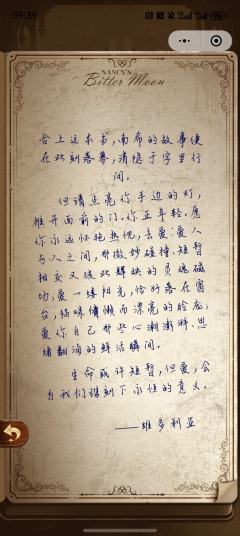 09:39
NANCY'S
Bitter Moon
合上这本书,南希的故事便
在此刻卷拳,清隐于字里行
间。
但请点亮你手边的灯,
推开面前的门。你正年轻,愿
你永远怀抱热忱,去爱:爱人
与人之间,那微妙碰撞、短暂
相交又彼此辉映的灵魂磁
场,爱一缕阳光,恰好落在窗
台,猫咪慵懒而漂亮的脸庞,
爱你自己那些心潮澎湃、思
绪翻涌的鲜活瞬间。
生命或许短暂,但爱,会
为我们谋刻下永恒的意义。
——维多利亚